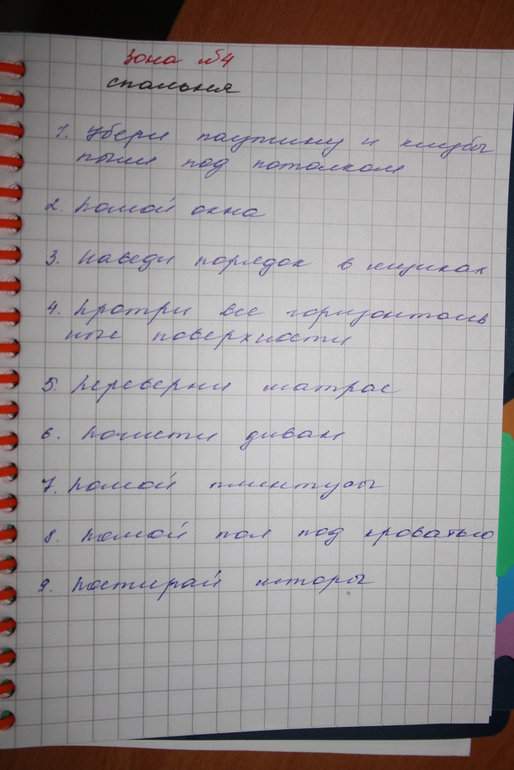 Зона №4
спальня
1. Убери паутину и клубы
пыли под потолком
2. Помой окна
3. Наведи порядок в ящиках
4. Протри все горизонталь
ные поверхности
5. Переверни матрас
6. Почисти диван
7. Помой плинтусы
8. Помой пол под кроватью
9. Постирай шторы